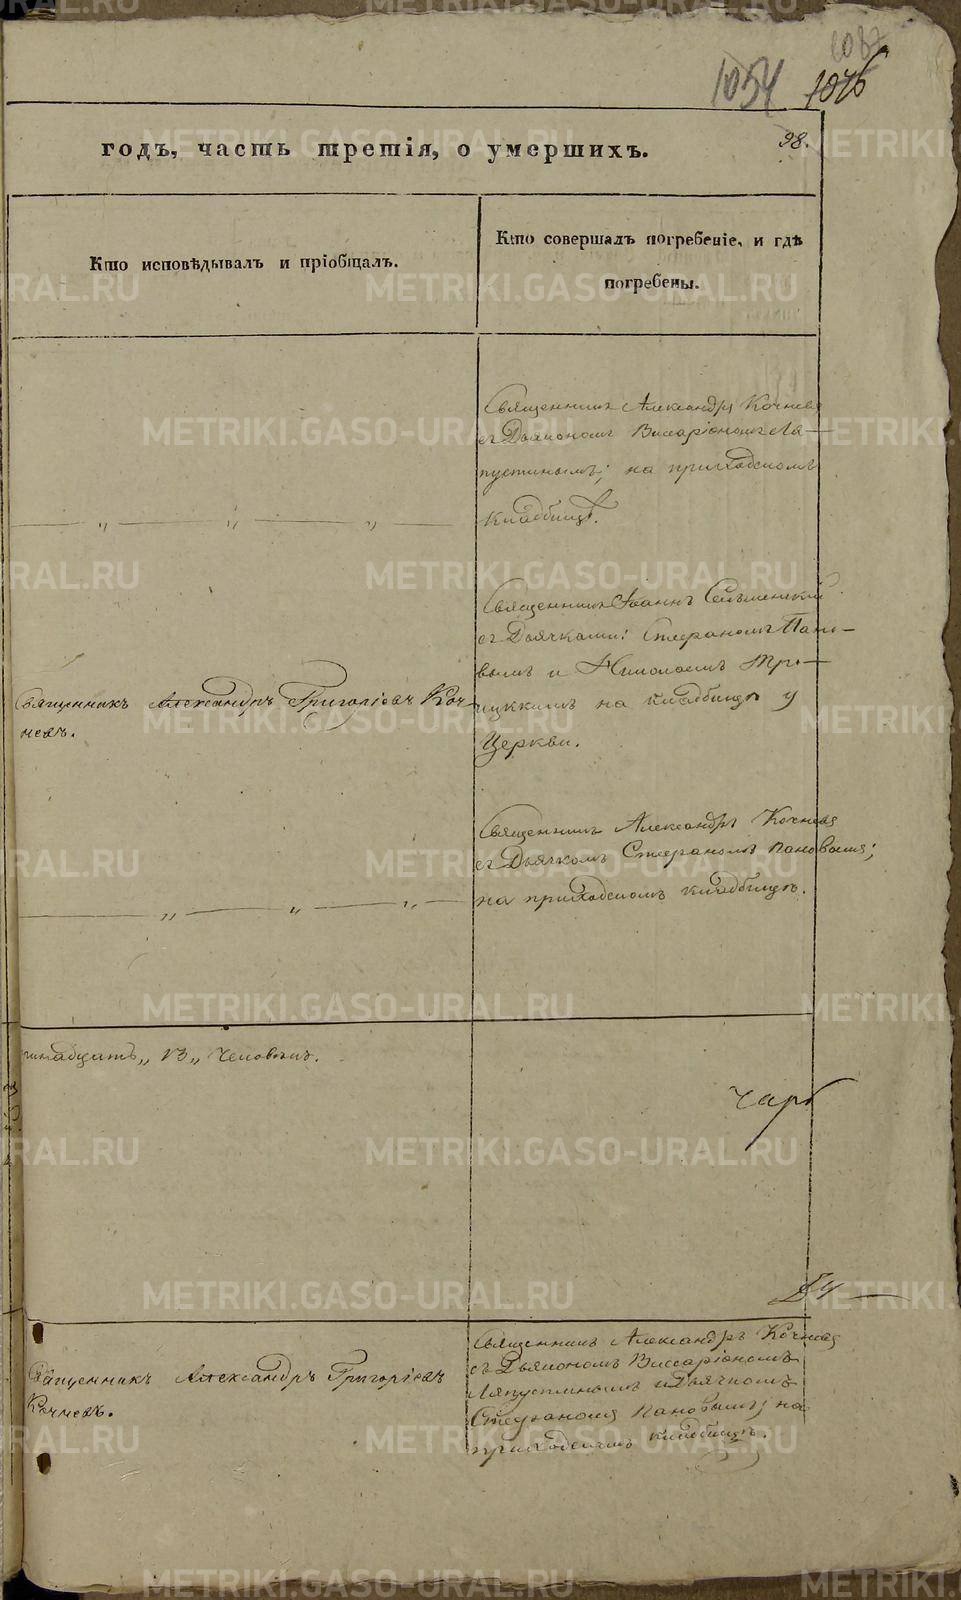 1054 1046
годъ, часть третія, о умершихъ.
98.
Кто исповѣдывалъ и пріобщалъ.
Кто совершалъ погребеніе, и гдѣ
погребены.
Священникъ Александръ Кочневъ
съ Дьякономъ Виссаріономъ Ла-
пустинымъ; на приходскомъ
кладбищѣ.
— „ — „ — „ —
Священникъ Іоаннъ
съ Дьячками: Стефаномъ Пано-
вымъ и Николаемъ Тро-
ицкимъ на кладбищѣ у
Церкви.
Священникъ Александръ Григоріевъ Коч-
невъ.
Священникъ Александръ Кочневъ
съ Дьячкомъ Стефаномъ Пановымъ;
на приходскомъ кладбищѣ.
— „ — „ — „ —
надцать „ 13 „ человѣкъ.
Священникъ Александръ Григоріевъ
Кочневъ.
Священникъ Александръ Кочневъ
съ Дьякономъ Виссаріономъ
Ляпустинымъ и Дьячкомъ
Стефаномъ Пановымъ; на
приходскомъ кладбищѣ.
METRIKI.GASO-URAL.RU